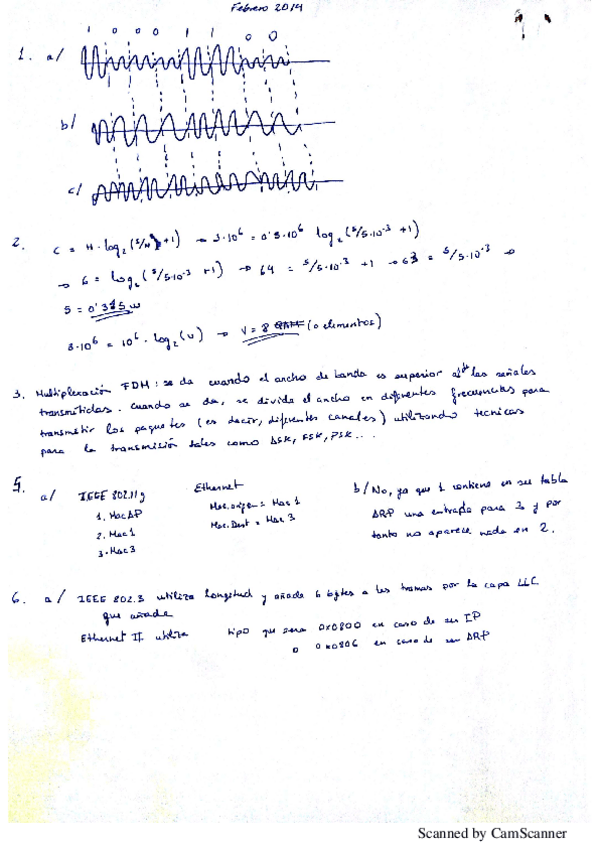 Febrero 2014
1 0 0 0 1 1 0 0
1. a/
b/
c/
2. C = H · log₂ (S/N + 1) → 3·10⁶ = 0'5·10⁶ log₂ (S/5·10⁻³ + 1)
→ 6 = log₂ (S/5·10⁻³ + 1) → 64 = S/5·10⁻³ + 1 → 63 = S/5·10⁻³ →
S = 0'315 w
3·10⁶ = 10⁶ · log₂ (V) → V = 8 (o elementos)
3. Multiplexación FDM: se da cuando el ancho de banda es superior al de las señales
transmitidas. Cuando se da, se divide el ancho en diferentes frecuencias para
transmitir los paquetes (es decir, diferentes canales) utilizando tecnicas
para la transmisión tales como ASK, FSK, PSK...
5. a/ IEEE 802.11g
1. Mac AP
2. Mac 1
3. Mac 3
Ethernet
Mac origen = Mac 1
Mac Dest = Mac 3
b/ No, ya que 1 contiene en su tabla
ARP una entrada para 3 y por
tanto no aparece nada en 2.
6. a/ IEEE 802.3 utiliza longitud y añade 6 bytes a las tramas por la capa LLC
que añade
Ethernet II utiliza tipo que sera 0x0800 en caso de ser IP
o 0x0806 en caso de ser ARP
Scanned by CamScanner